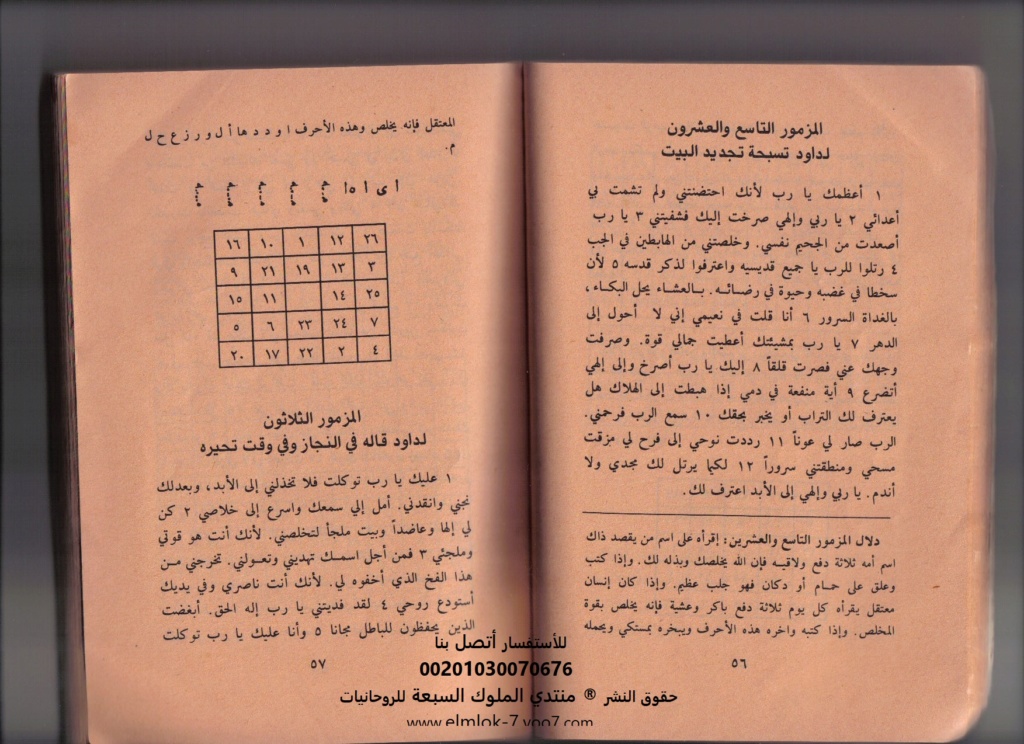 المزمور التاسع والعشرون
لداود تسبحة تجديد البيت
١ أعظمك يا رب لأنك احتضنتني ولم تشمت بي
أعدائي ٢ يا ربي وإلهي صرخت إليك فشفيتني ٣ يا رب
أصعدت من الجحيم نفسي. وخلصتني من الهابطين في الجب
٤ رتلوا للرب يا جميع قديسيه واعترفوا لذكر قدسه ٥ لأن
سخطا في غضبه وحيوة في رضائه. بالعشاء يحل البكاء،
بالغداة السرور ٦ أنا قلت في نعيمي إني لا أحول إلى
الدهر ٧ يا رب بمشيئتك أعطيت جمالي قوة. وصرفت
وجهك عني فصرت قلقاً ٨ إليك يا رب أصرخ وإلى إلهي
أتضرع ٩ أية منفعة في دمي إذا هبطت إلى الهلاك هل
يعترف لك التراب أو يخبر بحقك ١٠ سمع الرب فرحمني.
الرب صار لي عوناً ١١ رددت نوحي إلى فرح لي مزقت
مسحي ومنطقتني سروراً ١٢ لكيما يرتل لك مجدي ولا
أندم. يا ربي وإلهي إلى الأبد اعترف لك.
دلال المزمور التاسع والعشرين: إقرأه على اسم من يقصد ذاك
اسم أمه ثلاثة دفع ولاقيه فإن الله يخلصك وبذله لك. وإذا كتب
وعلق على حمام أو دكان فهو جلب عظيم. وإذا كان إنسان
معتقل يقرأه كل يوم ثلاثة دفع باكر وعشية فإنه يخلص بقوة
المخلص. وإذا كتبه واخره هذه الأحرف ويبخره بمستكي ويحمله
٥٦
المعتقل فإنه يخلص وهذه الأحرف ا و د د ه‍ا أ ل و ر ز ع ح ل
م.
ا ى ا ه‍ا
١٦ ١٠ ١ ١٢ ٢٦
٩ ٢١ ١٩ ١٣ ٣
١٥ ١١ ١٤ ٢٥
٥ ٦ ٢٣ ٢٤ ٧
٢٠ ١٧ ٢٢ ٢ ٤
المزمور الثلاثون
لداود قاله في النجاز وفي وقت تحيره
١ عليك يا رب توكلت فلا تخذلني إلى الأبد، وبعدلك
نجني وانقدني. أمل إلي سمعك واسرع إلى خلاصي ٢ كن
لي إلها وعاضداً وبيت ملجأ لتخلصني. لأنك أنت هو قوتي
وملجئي ٣ فمن أجل اسمك تهديني وتعولني. تخرجني من
هذا الفخ الذي أخفوه لي. لأنك أنت ناصري وفي يديك
أستودع روحي ٤ لقد فديتني يا رب إله الحق. أبغضت
الذين يحفظون للباطل مجانا ٥ وأنا عليك يا رب توكلت
٥٧
للأستفسار أتصل بنا
00201030070676
حقوق النشر ® منتدي الملوك السبعة للروحانيات
www.elmlok-7.yoo7.com